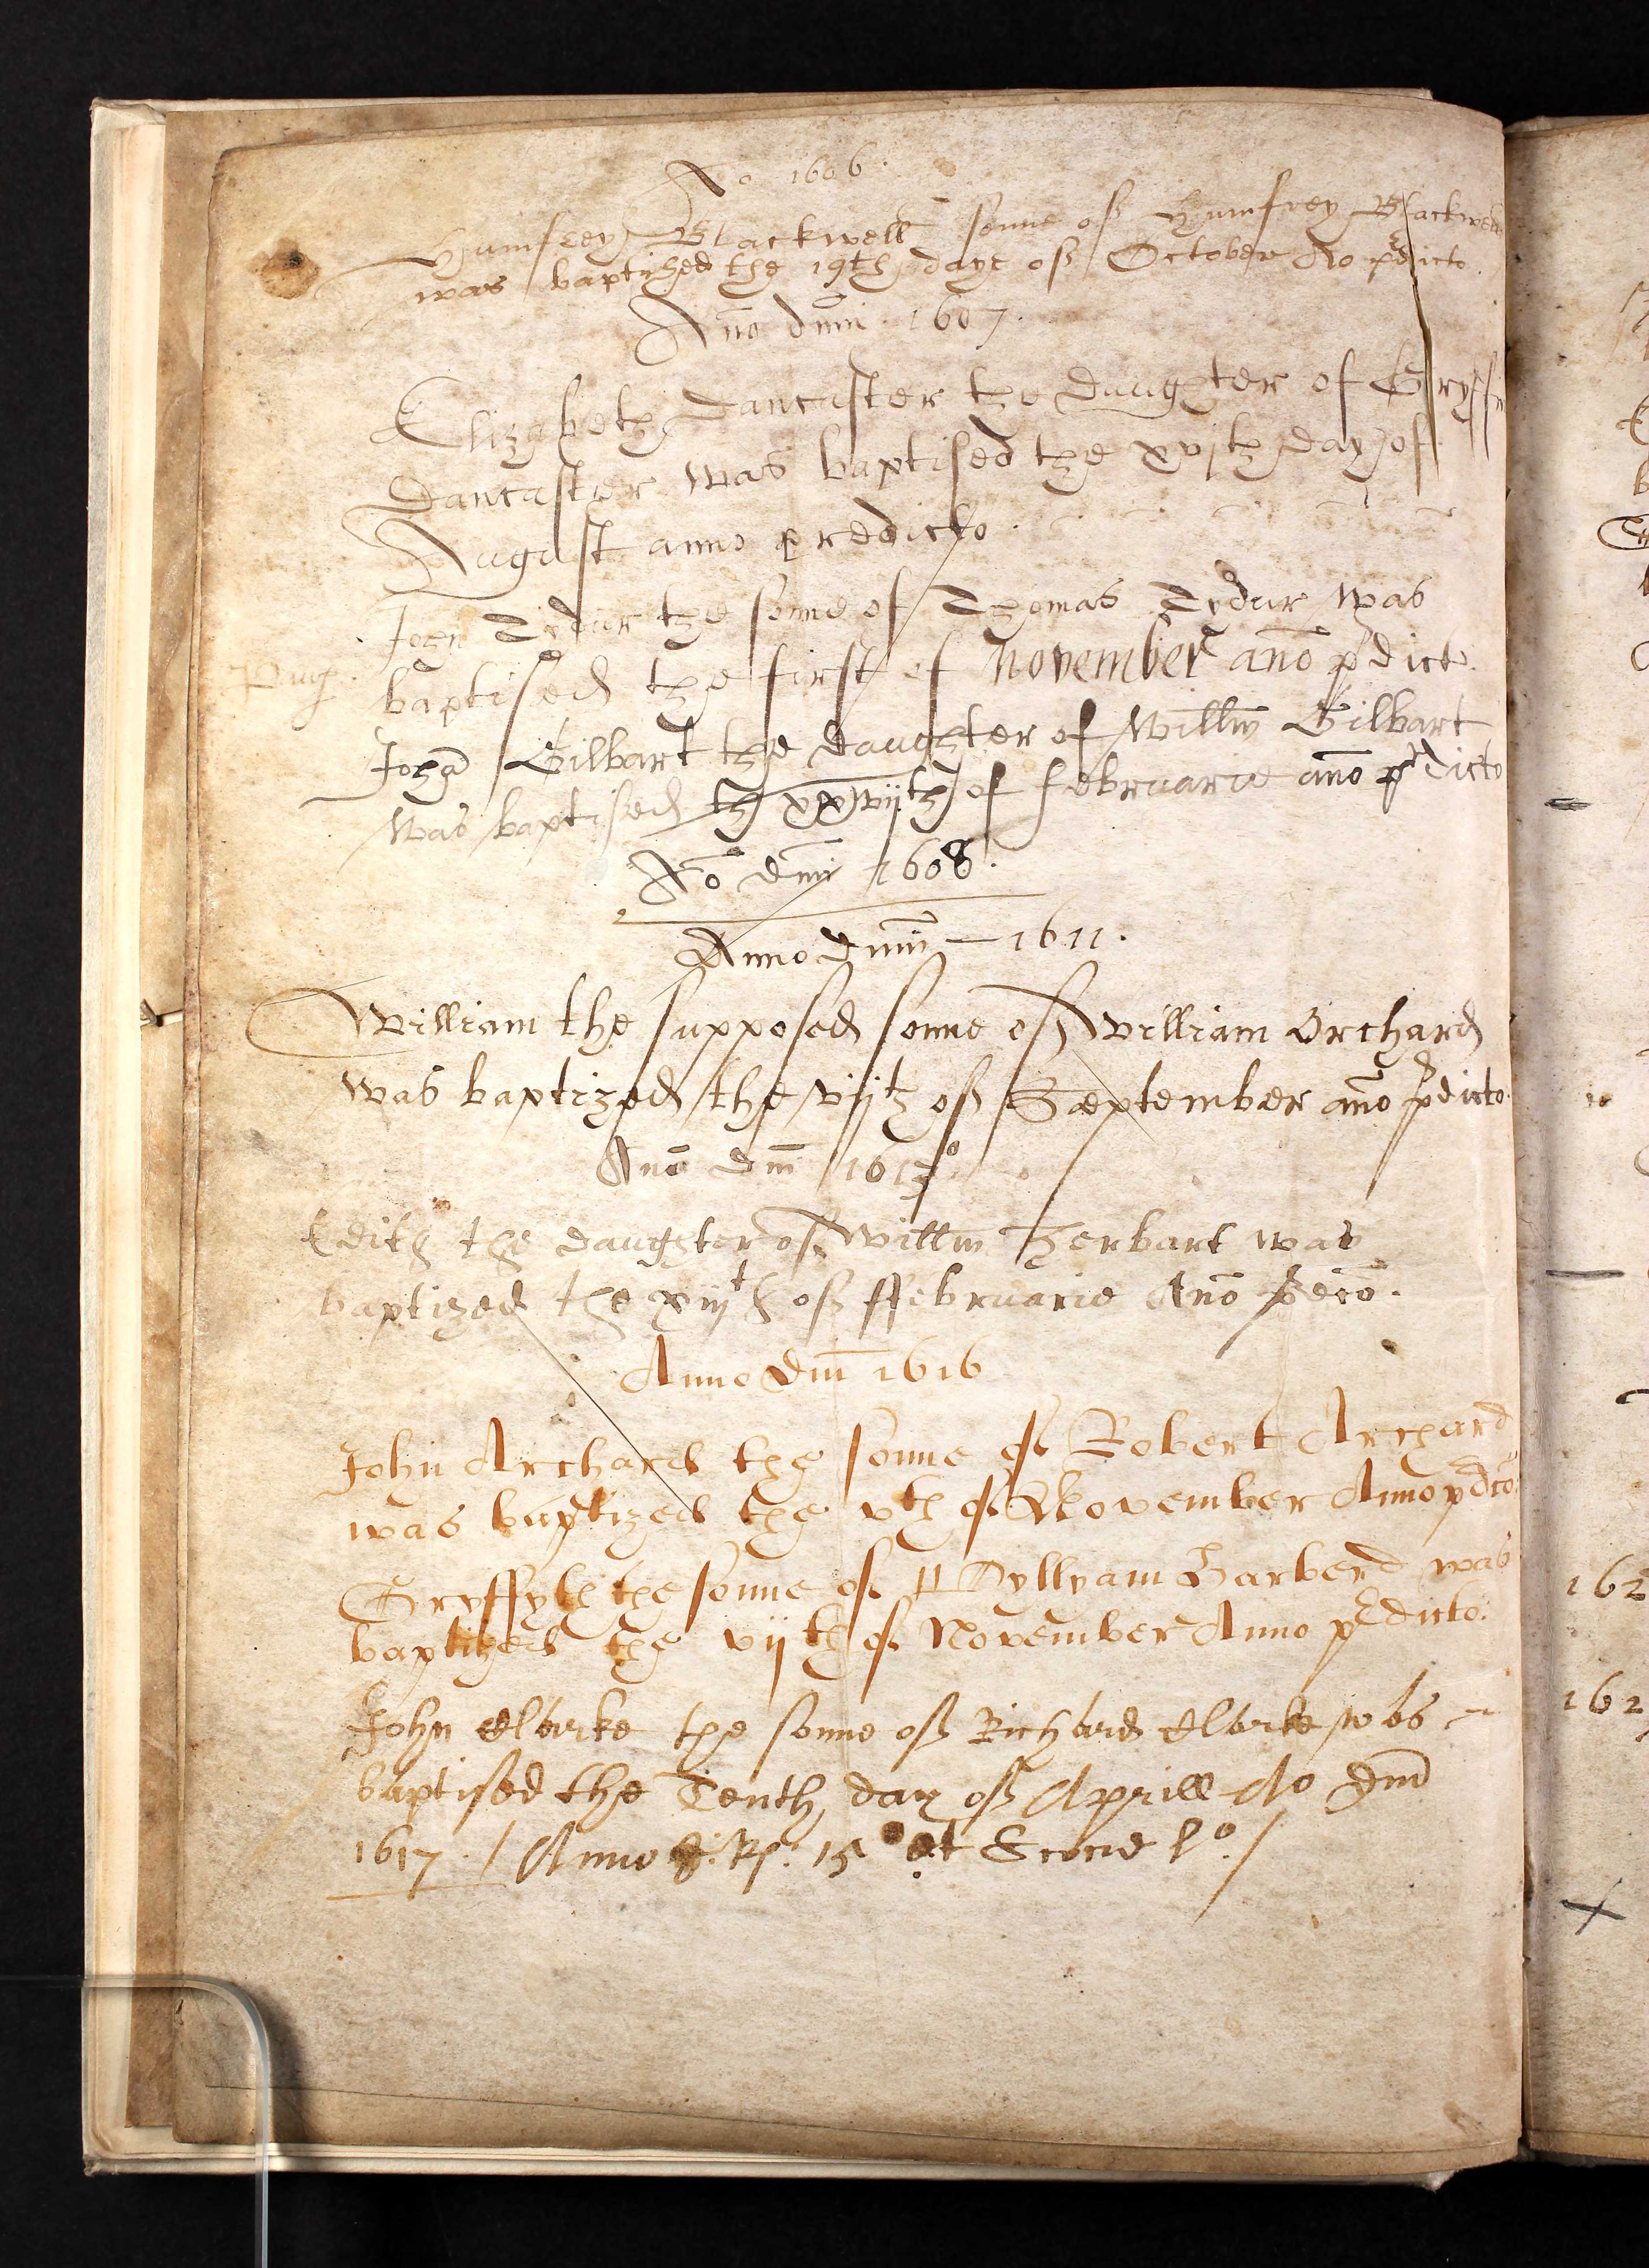 Ao 1606.
Humfrey Blackwell sonne of Humfrey Blackwell
was baptized the 19th daye of October Ao pdicto
Ano dmi 1607.
Elizabeth Dancaster the daughter of Gryffin
Dancaster was baptised the xvjth day of
August anno predicto.
John Tydur the sonne of Thomas Tydur was
baptised the first of November ano pdict.
Joha Gilbart the daughter of Willm Gilbart
was baptised th xxvijth of februarie ano prdicto
Ao dmi 1608.
Anno dmni — 1611.
William the supposed sonne of William Orchard
was baptized the vijth of September ano pdicto.
Ano dmi
Edith the daughter of Willm Herbart was
baptized the xiijth of ffebruarie Ano pdco.
Anno dmi 1616
John Archard the sonne of Robert Archard
was baptized the vth of November Anno pdco.
Gryffyth the sonne of Wyllyam Harberd was
baptized the vijth of November Anno prdicto.
John Clarke the sonne of Richard Clarke was
baptised the Tenth day of Aprill Ao dmi
1617. / Anno 15 et
162
162